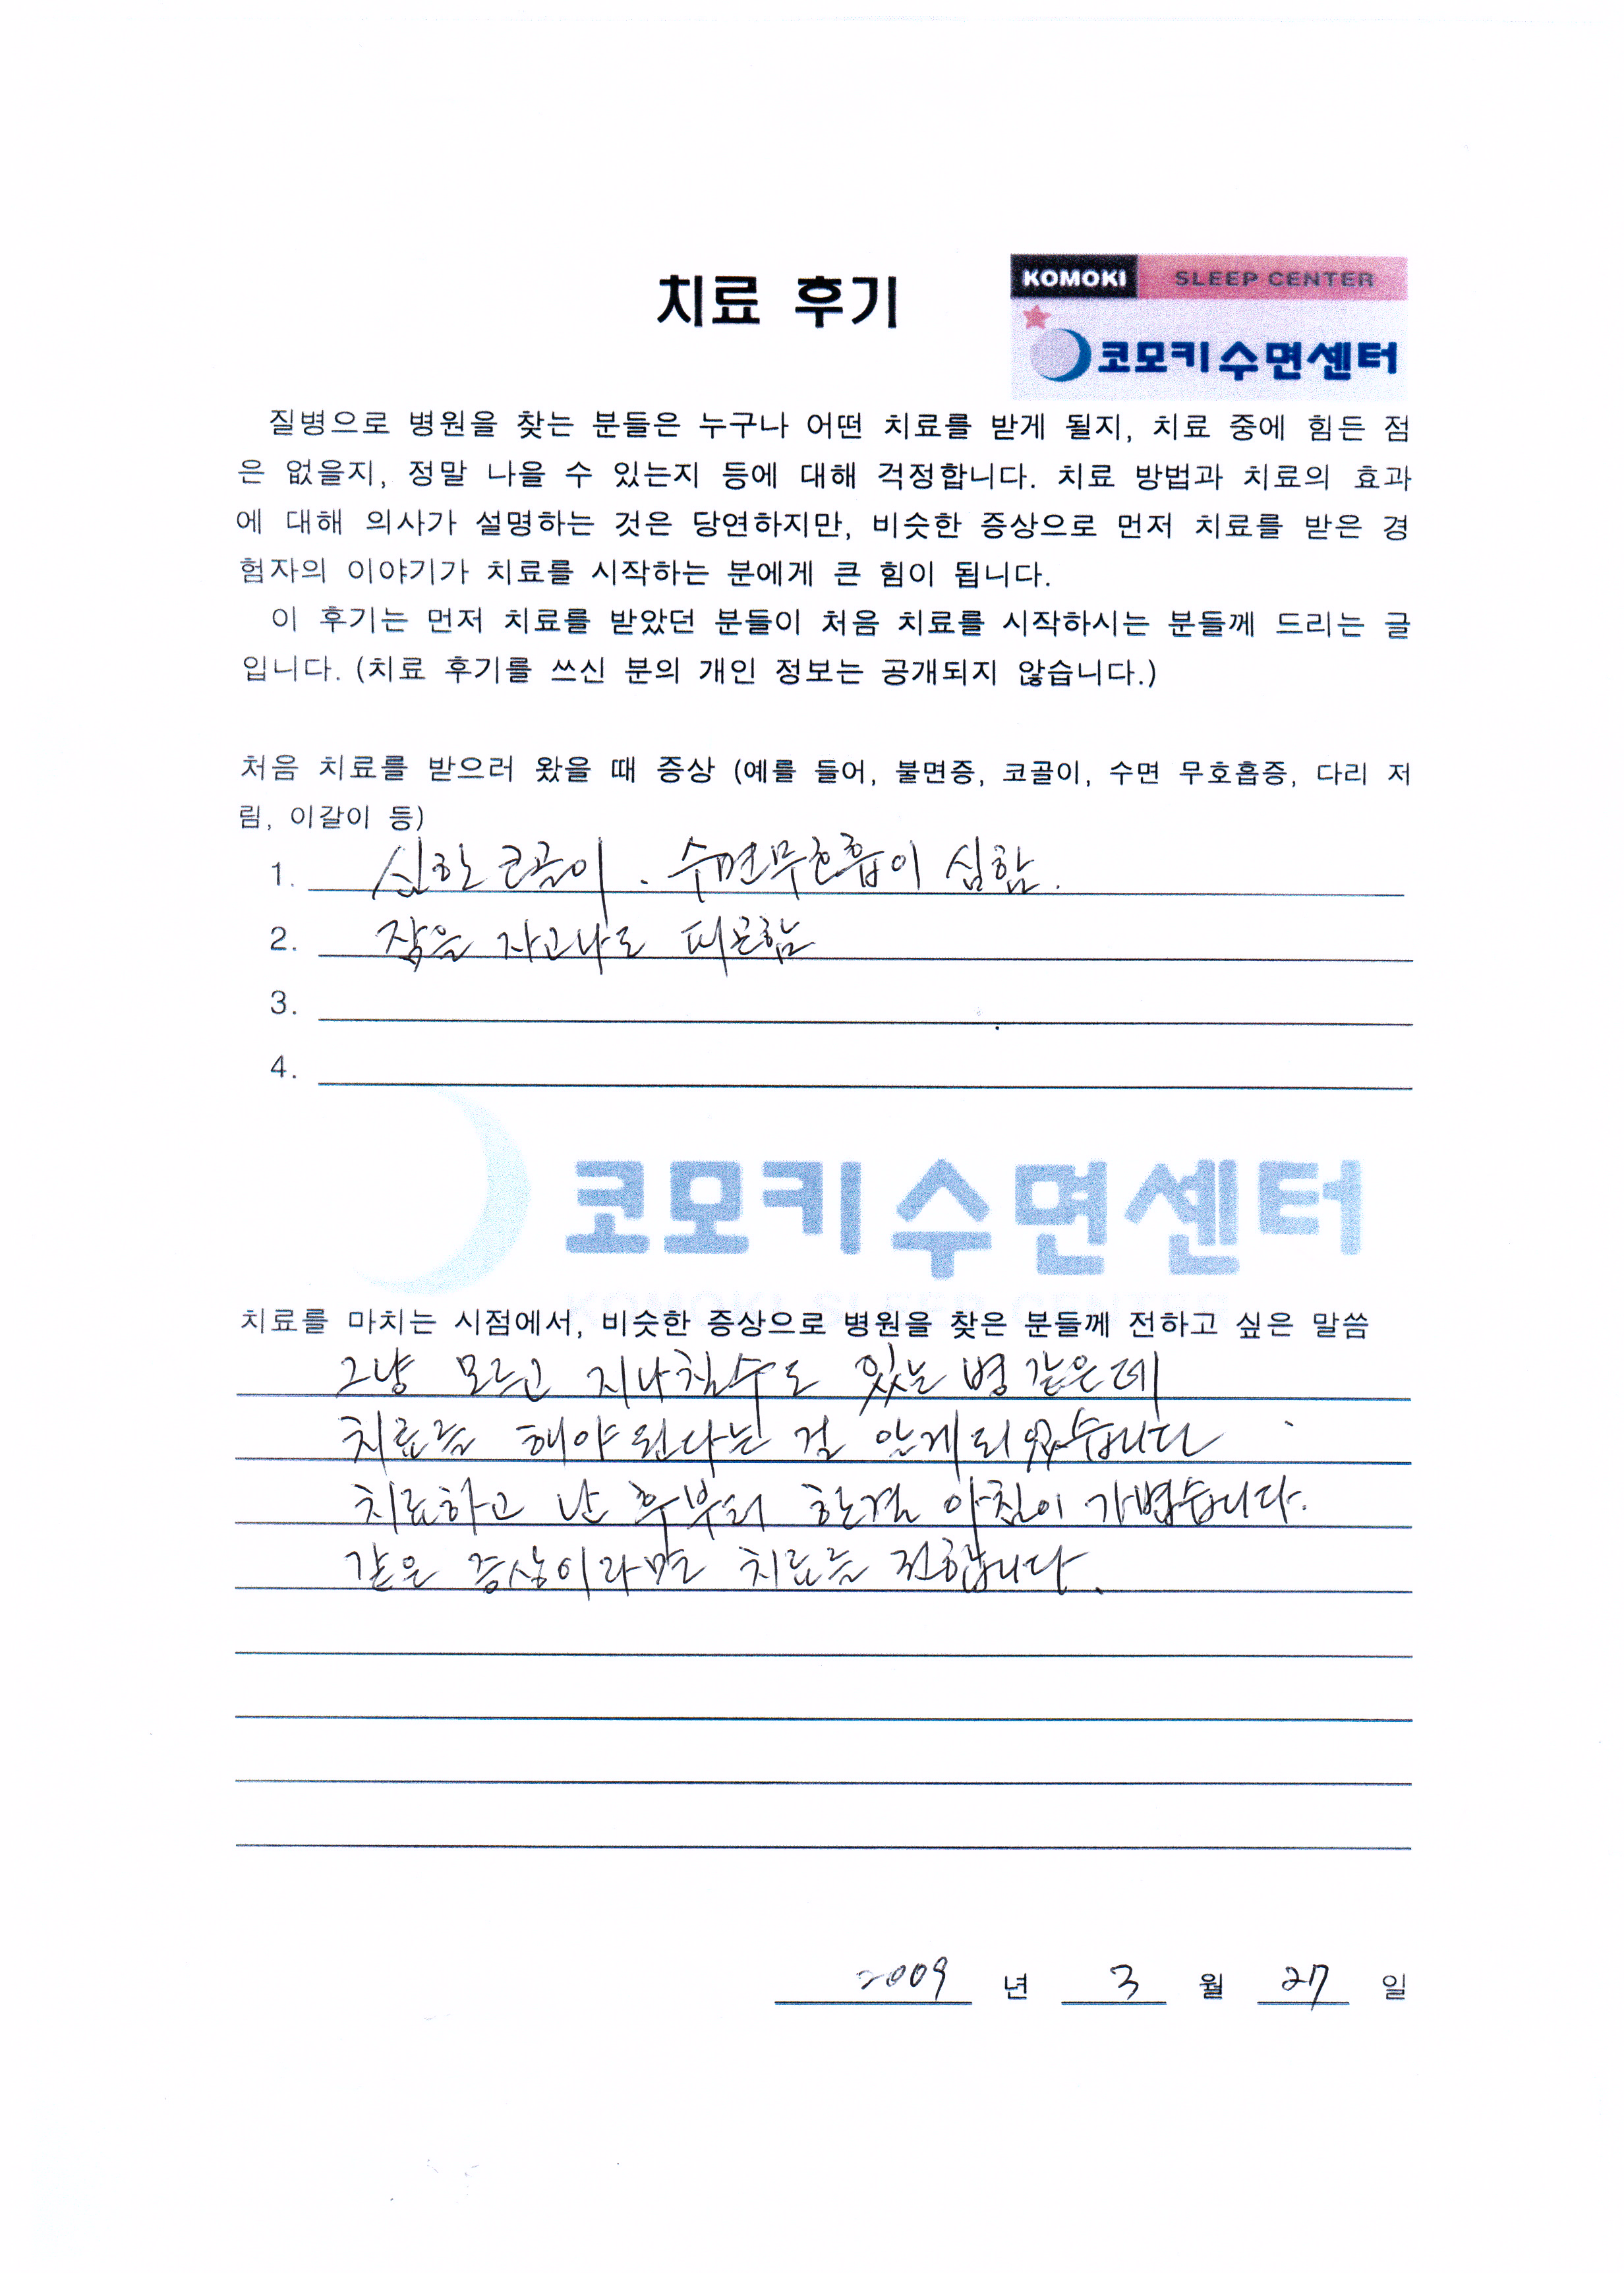 치료 후기
KOMOKI SLEEP CENTER
코모키수면센터
질병으로 병원을 찾는 분들은 누구나 어떤 치료를 받게 될지, 치료 중에 힘든 점
은 없을지, 정말 나을 수 있는지 등에 대해 걱정합니다. 치료 방법과 치료의 효과
에 대해 의사가 설명하는 것은 당연하지만, 비슷한 증상으로 먼저 치료를 받은 경
험자의 이야기가 치료를 시작하는 분에게 큰 힘이 됩니다.
이 후기는 먼저 치료를 받았던 분들이 처음 치료를 시작하시는 분들께 드리는 글
입니다. (치료 후기를 쓰신 분의 개인 정보는 공개되지 않습니다.)
처음 치료를 받으러 왔을 때 증상 (예를 들어, 불면증, 코골이, 수면 무호흡증, 다리 저
림, 이갈이 등)
1. 심한 코골이. 수면무호흡이 심함.
2. 잠을 자고나도 피곤함
3.
4.
코모키수면센터
KOMOKI SLEEP CENTER
치료를 마치는 시점에서, 비슷한 증상으로 병원을 찾은 분들께 전하고 싶은 말씀
그냥 모르고 지나칠수도 있는 병 같은데
치료를 해야 된다는 걸 알게 되었습니다
치료하고 난 후부터 한결 아침이 가볍습니다.
같은 증상이라면 치료를 권합니다.
2009 년 3 월 27 일